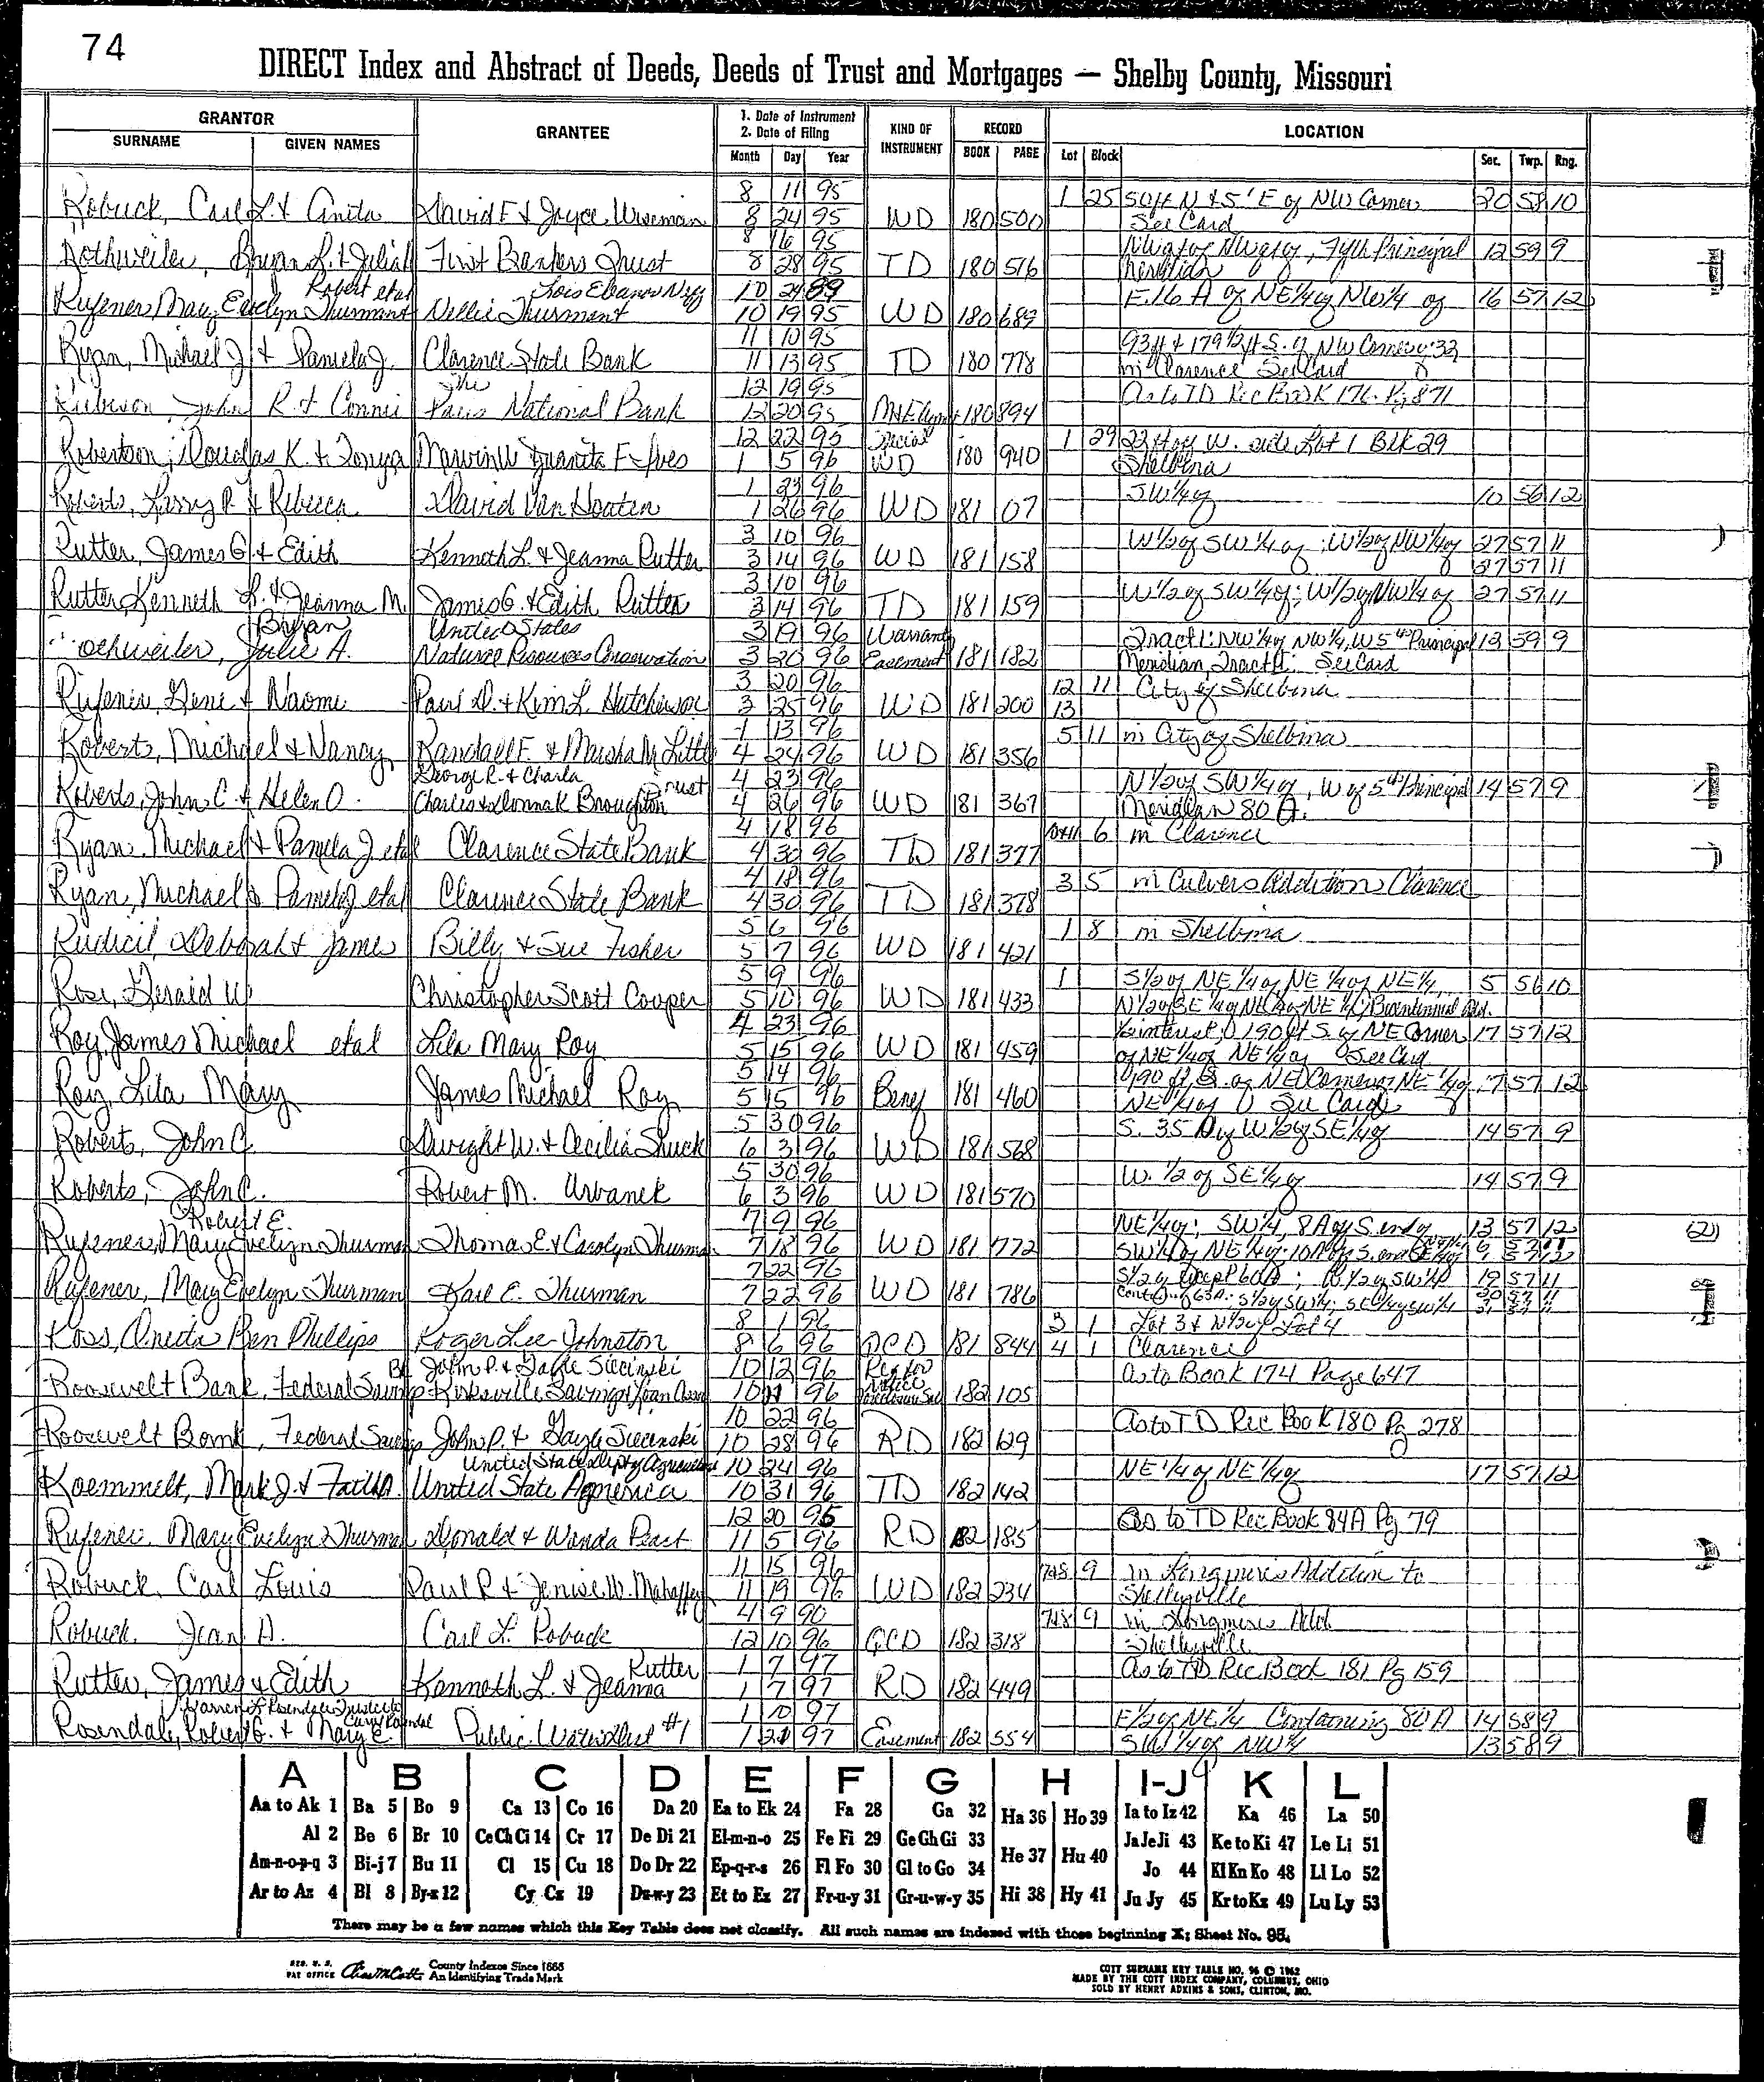 74
DIRECT Index and Abstract of Deeds, Deeds of Trust and Mortgages — Shelby County, Missouri
GRANTOR GRANTEE 1. Date of Instrument 2. Date of Filing KIND OF INSTRUMENT RECORD LOCATION
SURNAME GIVEN NAMES Month Day Year BOOK PAGE Lot Block Sec. Twp. Rng.
8 11 95 1 25 50 ft N & 5' E of NW Corner 20 58 10
Robuck, Carl L. & Anita David F & Joyce Wiseman 8 24 95 WD 180 500 See Card
8 16 95 12 59 9
Rothweiler, Bryan L. & Julia First Bankers Trust 8 28 95 TD 180 516 Meridian
Robert etal Lois Eleanor Neff 10 24 89 E. 16 A of NE 1/4 of NW 1/4 of 16 57 12
Rufener Mary Evelyn Thurment Nellie Thurment 10 19 95 WD 180 689
11 10 95 93 ft & 179 1/2 ft S. of NW Corner
Ryan, Michael J & Pamela J. Clarence State Bank 11 13 95 TD 180 778 in Clarence See Card
The 12 19 95 As to TD Rec Book 176 Pg 871
John R & Connie Paris National Bank 12 20 95 180 894
12 22 95 Special 1 29 22 ft of W. side Lot 1 Blk 29
Robertson, Douglas K. & Tonya Marvin W Juanita F Ives 1 5 96 WD 180 940 Shelbina
1 23 96 SW 1/4 of 10 56 12
Roberts, Larry R & Rebecca David Van Houten 1 26 96 WD 181 07
3 10 96 W 1/2 of SW 1/4 of; W 1/2 of NW 1/4 of 27 57 11
Rutter, James G & Edith Kenneth L. & Jeanna Rutter 3 14 96 WD 181 158 27 57 11
3 10 96 W 1/2 of SW 1/4 of; W 1/2 of NW 1/4 of 27 57 11
Rutter, Kenneth L. & Jeanna M. James G. & Edith Rutter 3 14 96 TD 181 159
Bryan United States 3 19 96 Warranty Tract 1: NW 1/4 of NW 1/4, W 5th Principal 13 59 9
Julie A. Natural Resources Conservation 3 20 96 Easement 181 182 Meridian, Tract II: See Card
3 20 96 12 11 City of Shelbina
Rufener, Gene & Naomi Paul D. & Kim L. Hutcherson 3 25 96 WD 181 200 13
13 96 5 11 in City of Shelbina
Roberts, Michael & Nancy Randall F. & Marsha M. Little 4 24 96 WD 181 356
George R. & Charla Trust 4 23 96 N 1/2 of SW 1/4 of, W of 5th Principal 14 57 9
Roberts, John C. & Helen O. Charles & Donna K Broughton 4 26 96 WD 181 367 Meridian 80 A.
4 18 96 6 in Clarence
Ryan, Michael & Pamela J etal Clarence State Bank 4 30 96 TD 181 377
4 18 96 3 5 in Culvers Addition Clarence
Ryan, Michael & Pamela J etal Clarence State Bank 4 30 96 TD 181 378
5 6 96 1 8 in Shelbina
Rudicil, Deborah & James Billy & Sue Fisher 5 7 96 WD 181 421
5 9 96 1 S 1/2 of NE 1/4 of, NE 1/4 of NE 1/4, 5 56 10
Rose, Gerald W Christopher Scott Cooper 5 10 96 WD 181 433 Bicentennial Add.
4 23 96 interest, 190 ft S of NE Corner 17 57 12
Roy, James Michael etal Lila Mary Roy 5 15 96 WD 181 459 of NE 1/4 of NE 1/4 of See Card
5 14 96 190 ft S. of NE Corner NE 1/4 of 17 57 12
Roy, Lila Mary James Michael Roy 5 15 96 Benef 181 460 NE 1/4 of See Card
5 30 96 S. 35 A of W 1/2 of SE 1/4 of 14 57 9
Roberts, John C. Dwight W. & Cecilia Shuck 6 3 96 WD 181 568
5 30 96 W. 1/2 of SE 1/4 of 14 57 9
Roberts, John C. Robert M. Urbanek 6 3 96 WD 181 570
Robert E. 7 9 96 NE 1/4 of; SW 1/4, 8 A of S. end of 13 57 12
Rufener, Mary Evelyn Thurman Thomas E & Carolyn Thurman 7 18 96 WD 181 772
7 22 96 19 57 11
Rufener, Mary Evelyn Thurman Karl E. Thurman 7 22 96 WD 181 786 S 1/2 of SW 1/4; SE 1/4 of SW 1/4
8 1 96 3 1 Lot 3 & N 1/2 of Lot 4
Ross, Oneda Phillips Roger Lee Johnston 8 6 96 QCD 181 844 4 1 Clarence
John P. & Gayle Siecinski 10 12 96 As to Book 174 Page 647
Roosevelt Bank, Federal Savings Kirksville Savings & Loan Assn 96 182 105
10 22 96 As to TD Rec Book 180 Pg 278
Roosevelt Bank, Federal Savings John P. & Gayle Siecinski 10 28 96 RD 182 129
United States Dept of Agriculture 10 24 96 NE 1/4 of NE 1/4 of 17 57 12
Roemmelt, Mark J. & Faith A. United State America 10 31 96 TD 182 142
12 20 95 As to TD Rec Book 84A Pg 79
Rufener, Mary Evelyn Thurman Donald & Wanda Peart 11 5 96 RD 182 185
11 15 96 7&8 9 in Longmires Addition to
Robuck, Carl Louis Paul R & Jenise W. Mahaffey 11 19 96 WD 182 234 Shelbyville
4 9 90 7&8 9 in Longmires Add
Robuck, Jean A. Carl L. Robuck 12 10 96 QCD 182 318 Shelbyville
Rutter 1 7 97 As to TD Rec Book 181 Pg 159
Rutter, James & Edith Kenneth L. & Jeanna 1 7 97 RD 182 449
Warren L Rosendale Trustee 1 10 97 E 1/2 of NE 1/4 Containing 80 A 14 58 9
Rosendale, Robert G. & Mary E. Public Water Dist #1 1 97 Easement 182 554 SW 1/4 of NW 1/4 13 58 9
A B C D E F G H I-J K L
Aa to Ak 1 Ba 5 Bo 9 Ca 13 Co 16 Da 20 Ea to Ek 24 Fa 28 Ga 32 Ha 36 Ho 39 Ia to Iz 42 Ka 46 La 50
Al 2 Be 6 Br 10 Ce Ch Ci 14 Cr 17 De Di 21 El-m-n-o 25 Fe Fi 29 Ge Gh Gi 33 He 37 Hu 40 Ja Je Ji 43 Ke to Ki 47 Le Li 51
Am-n-o-p-q 3 Bi-j 7 Bu 11 Cl 15 Cu 18 Do Dr 22 Ep-q-r-s 26 Fl Fo 30 Gl to Go 34 Jo 44 Kl Kn Ko 48 Ll Lo 52
Ar to Az 4 Bl 8 By-z 12 Cy Cz 19 Du-w-y 23 Et to Ez 27 Fr-u-y 31 Gr-u-w-y 35 Hi 38 Hy 41 Ju Jy 45 Kr to Kz 49 Lu Ly 53
There may be a few names which this Key Table does not classify. All such names are indexed with those beginning X; Sheet No. 95.
REG. U. S. PAT OFFICE County Indexes Since 1888 An Identifying Trade Mark
COTT SURNAME KEY TABLE NO. 96 © 1962
MADE BY THE COTT INDEX COMPANY, COLUMBUS, OHIO
SOLD BY HENRY ADKINS & SONS, CLINTON, MO.